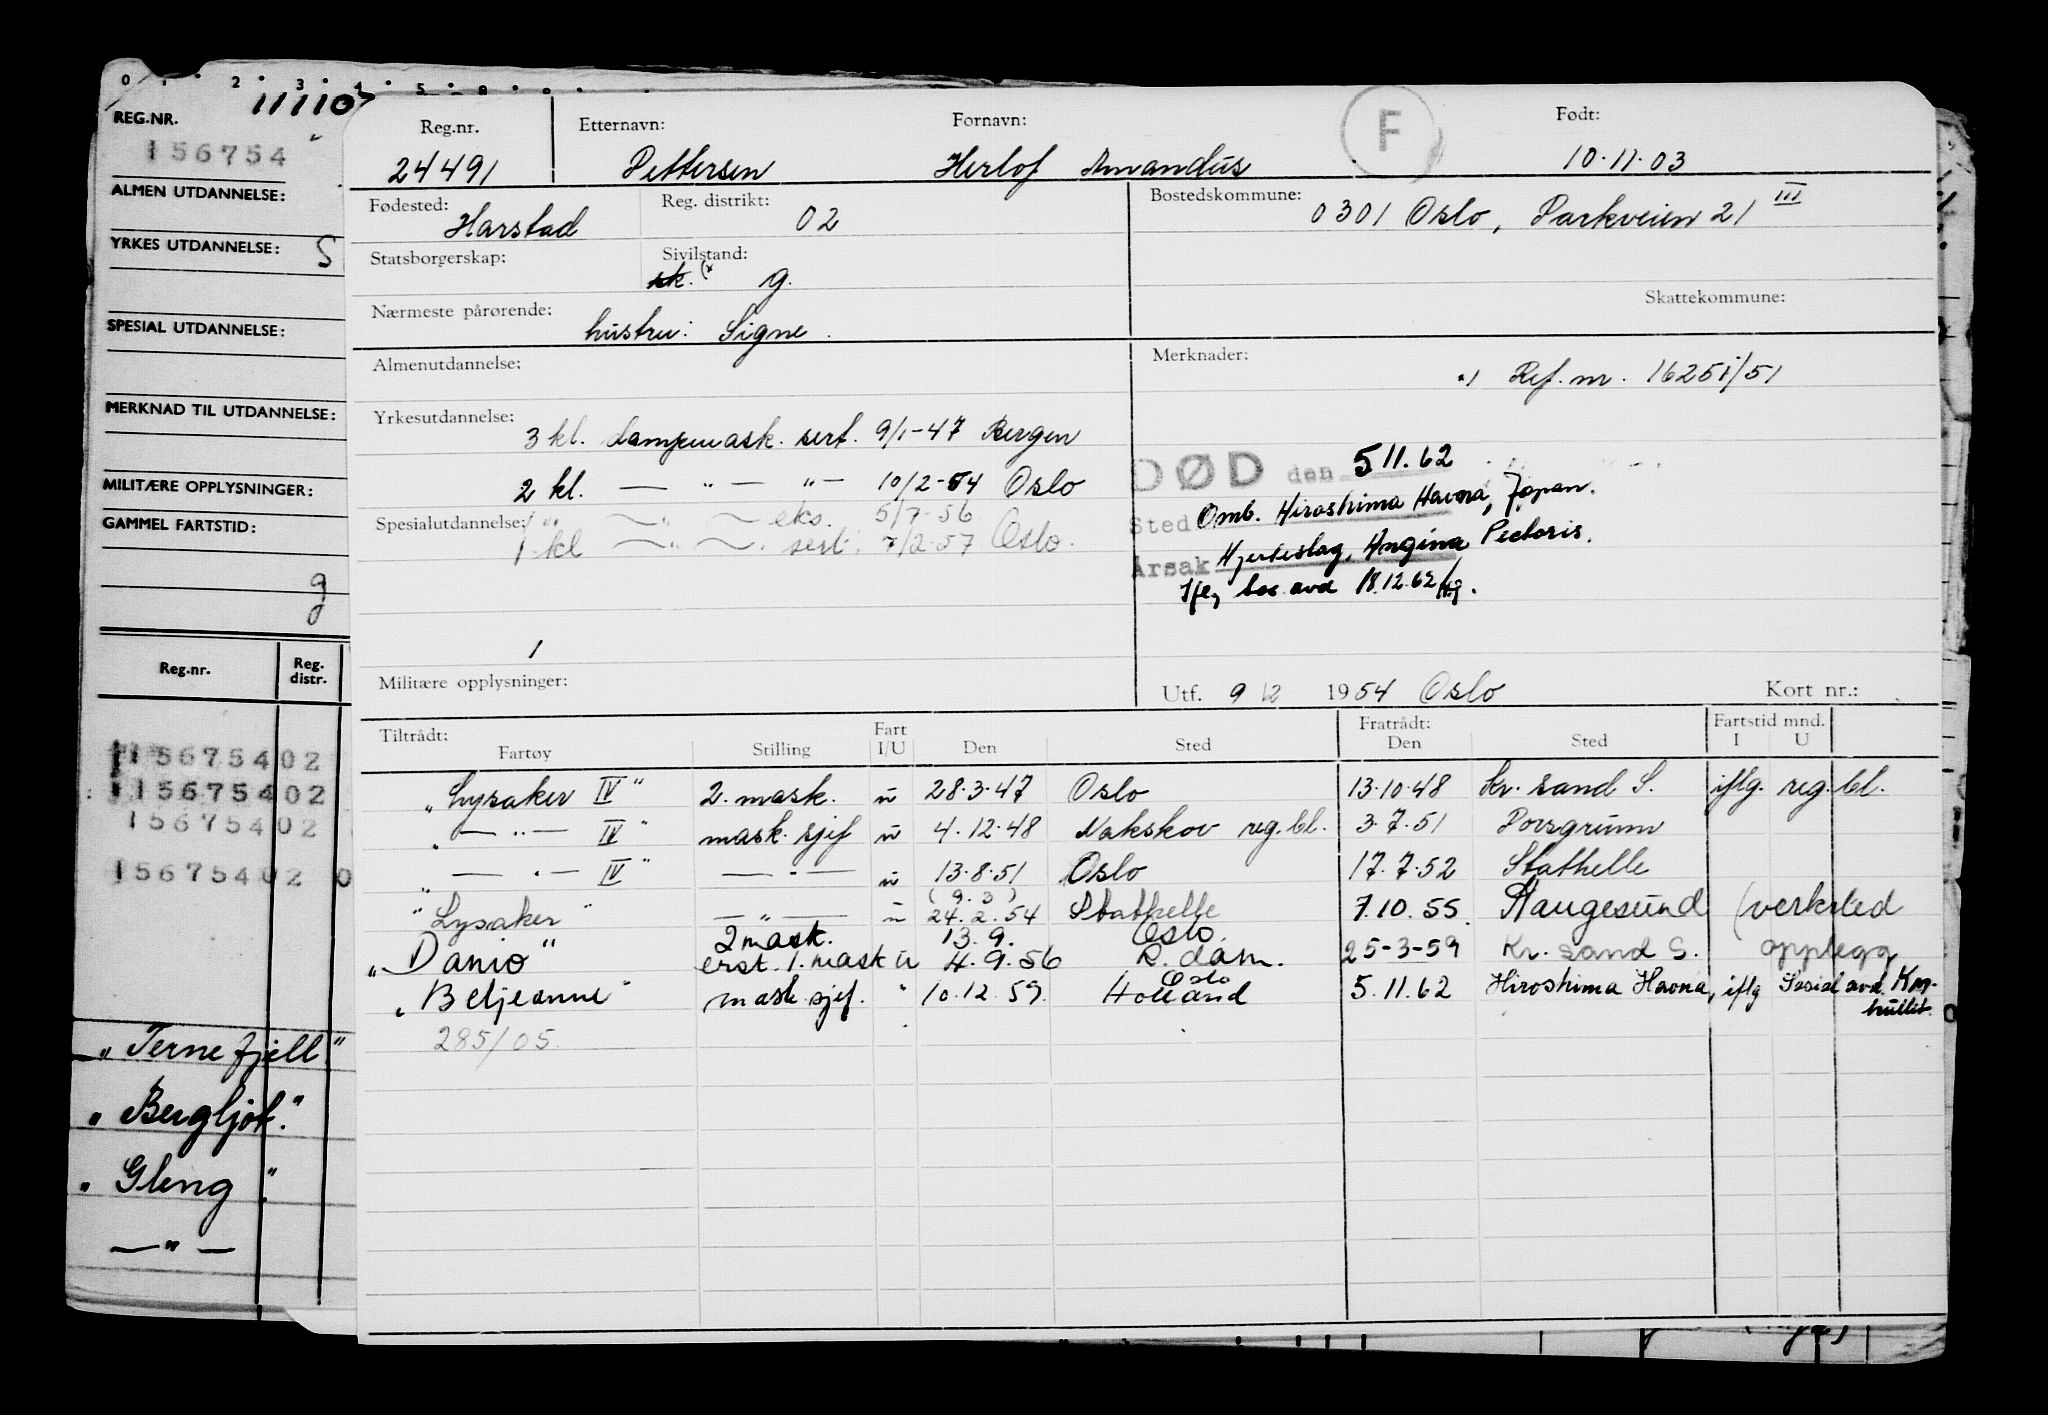 111107
REG.NR.
156754
ALMEN UTDANNELSE:
YRKES UTDANNELSE: S
SPESIAL UTDANNELSE:
MERKNAD TIL UTDANNELSE:
MILITÆRE OPPLYSNINGER:
GAMMEL FARTSTID:
g
Reg.nr. Reg. distr.
15675402
15675402
15675402
15675402 0
"Ternefjell"
"Bergljot."
"Gleng"
— " —
Reg.nr. Etternavn: Fornavn: F Født:
24491 Pettersen Herlof Amandus 10.11.03
Fødested: Harstad Reg. distrikt: 02 Bostedskommune: 0301 Oslo, Parkveien 21 III
Statsborgerskap: Sivilstand: sk. (x g.
Nærmeste pårørende: hustru: Signe. Skattekommune:
Almenutdannelse: Merknader:
x) Ref. nr. 16251/51
Yrkesutdannelse: 3 kl. dampmask. sert. 9/1-47 Bergen
2 kl. — " — " — 10/2-54 Oslo
Spesialutdannelse: 1 " — " — eks. 5/7-56
1 kl — " — sert. 7/2-57 Oslo.
DØD den 5 11.62
Sted Omb. Hiroshima Havna, Japan.
Årsak Hjerteslag, Angina Pectoris.
Iflg sos. avd 18.12.62
1
Militære opplysninger: Utf. 9/2 1954 Oslo Kort nr.:
Tiltrådt: Fratrådt: Fartstid mnd.
Fartøy Stilling Fart I/U Den Sted Den Sted I U
"Lysaker IV" 2. mask. u 28.3.47 Oslo 13.10.48 Kr. sand S. iflg. reg. bl.
" — " — IV" mask. sjef u 4.12.48 Nakskov reg. bl. 3.7.51 Porsgrunn
" — " — IV" — " — u 13.8.51 Oslo 17.7.52 Stathelle
"Lysaker" — " — u (9.3) 24.2.54 Stathelle 7.10.55 Haugesund (verksted
opplegg
"Danio" 2 mask. 13.9. Oslo.
erst. 1. mask u 4.9.56 R.dam. 25-3-59 Kr. sand S.
"Beljeanne" mask. sjef. " 10.12.59. Oslo Holland 5.11.62 Hiroshima Havna, iflg Sosial avd.
285/05